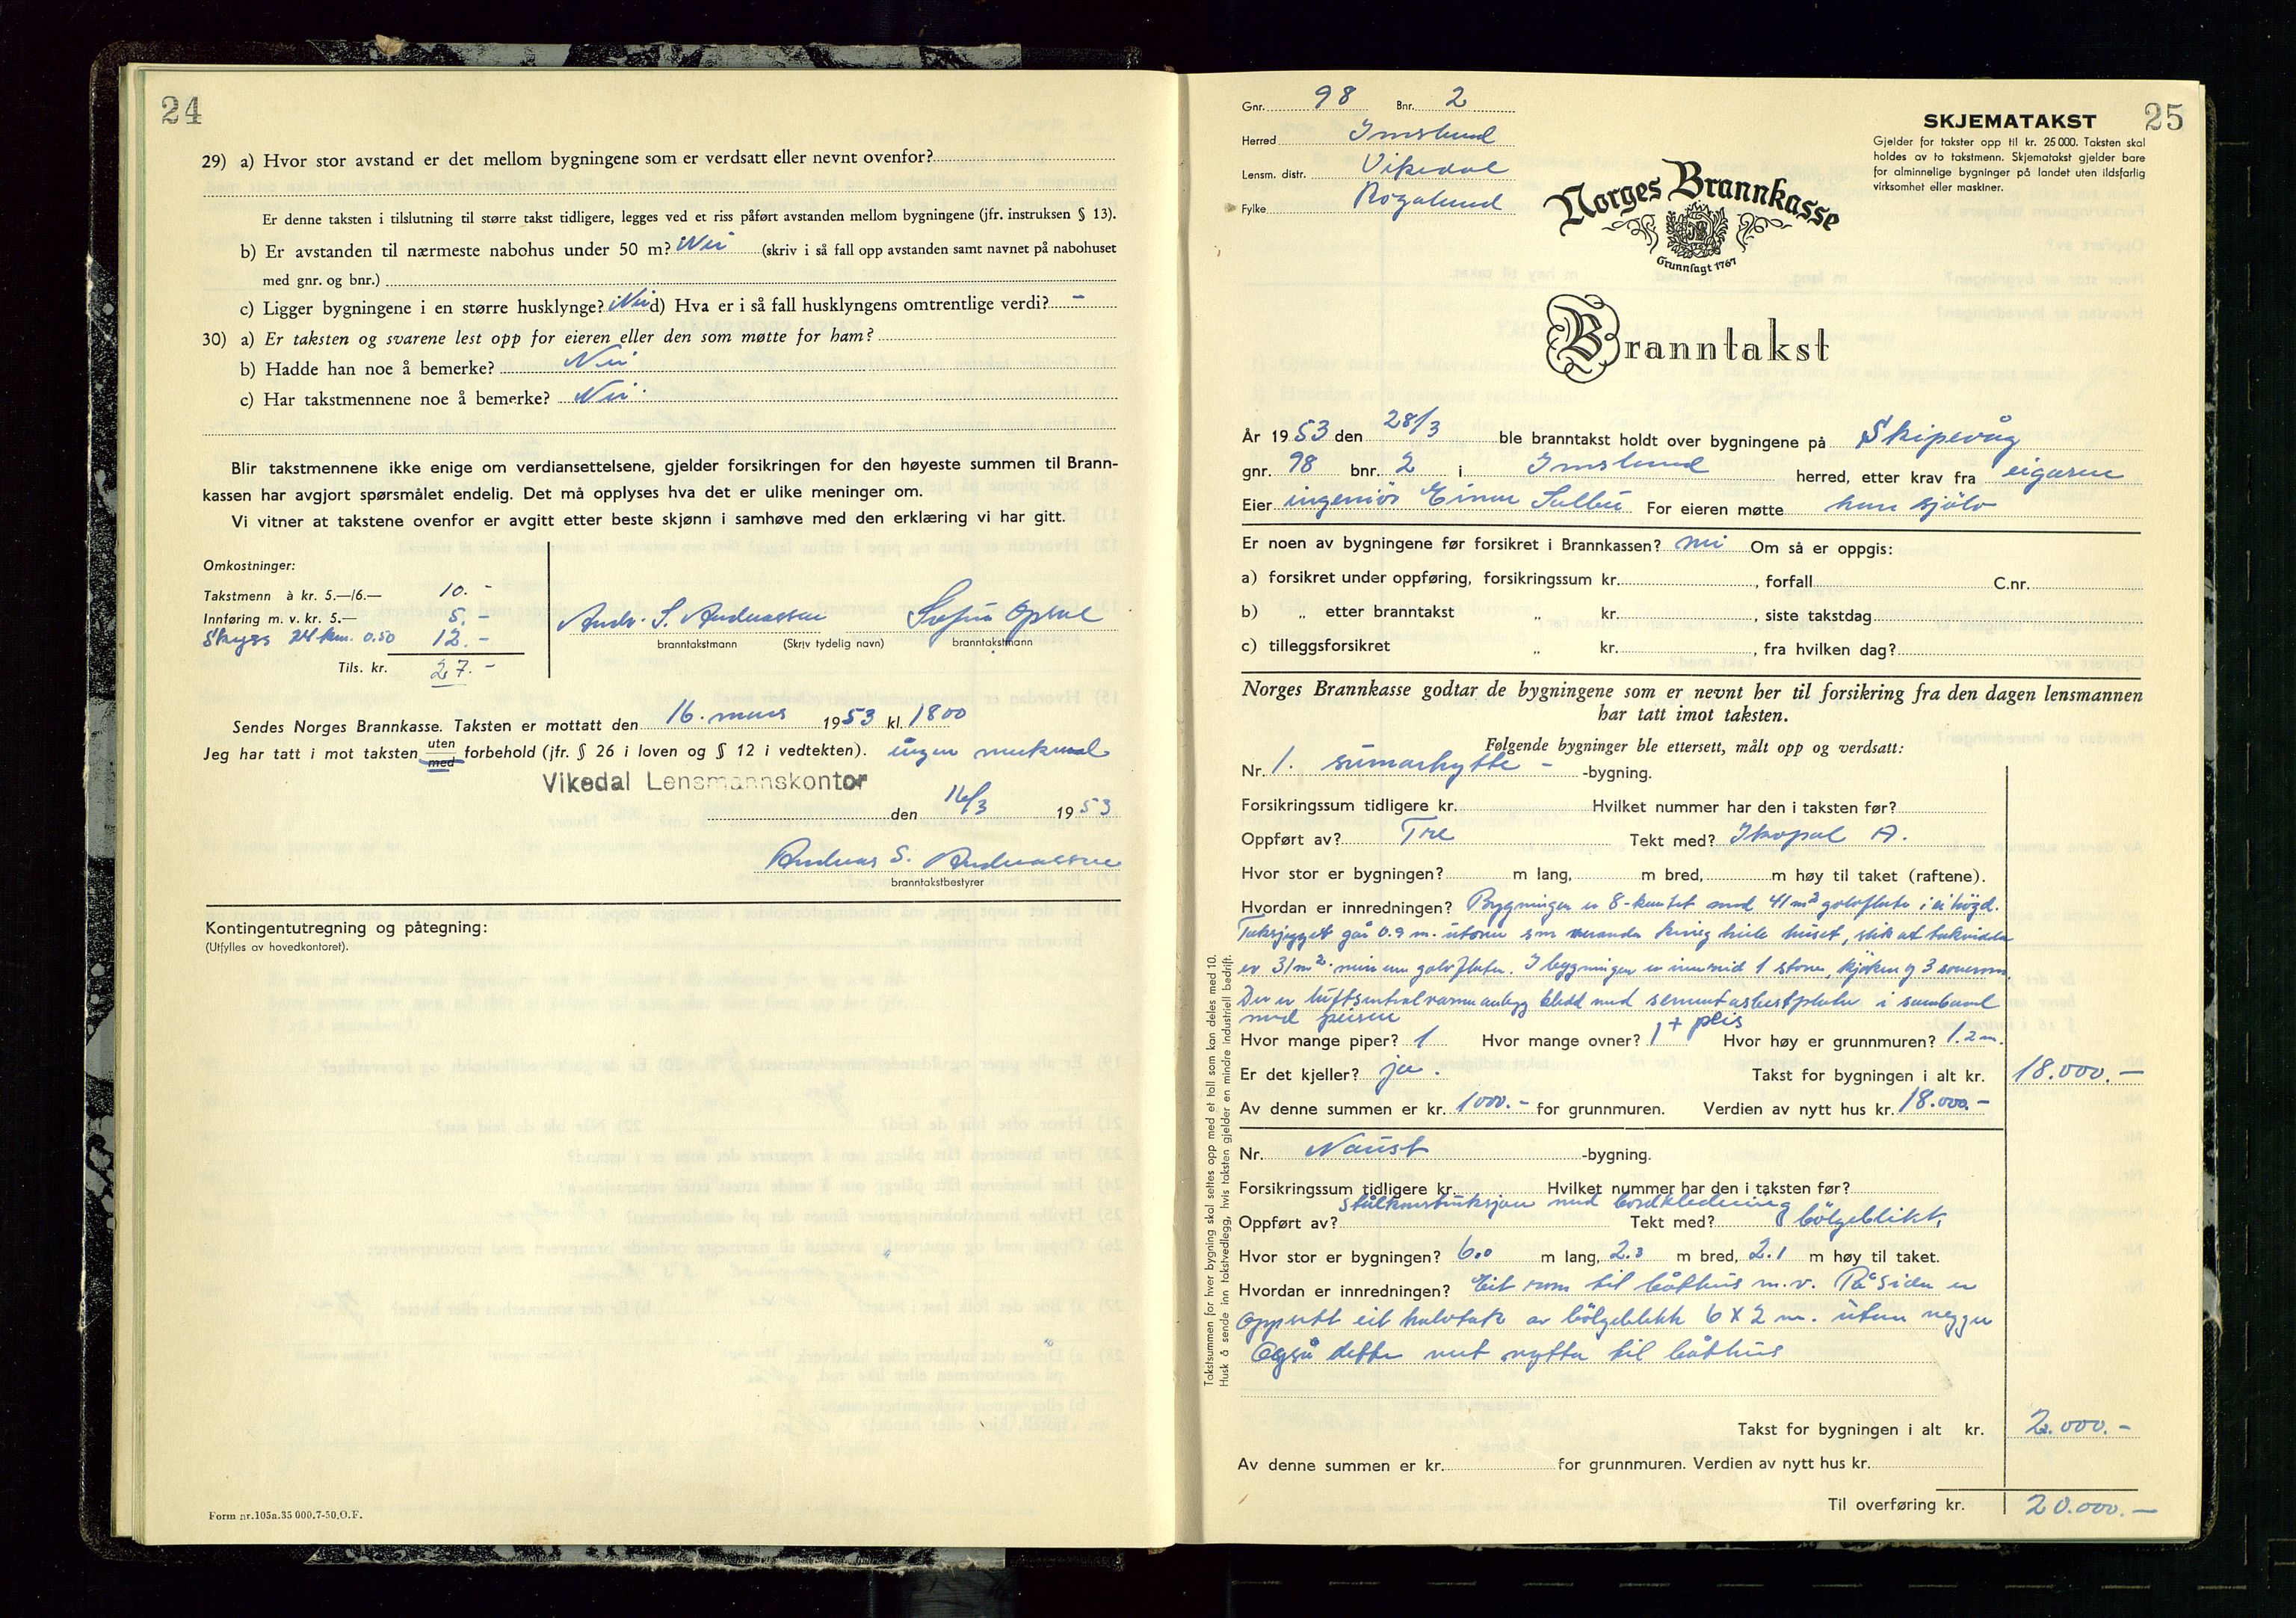 24
29) a) Hvor stor avstand er det mellom bygningene som er verdsatt eller nevnt ovenfor?
Er denne taksten i tilslutning til større takst tidligere, legges ved et riss påført avstanden mellom bygningene (jfr. instruksen § 13).
b) Er avstanden til nærmeste nabohus under 50 m? Nei (skriv i så fall opp avstanden samt navnet på nabohuset
med gnr. og bnr.)
c) Ligger bygningene i en større husklynge? Nei d) Hva er i så fall husklyngens omtrentlige verdi? -
30) a) Er taksten og svarene lest opp for eieren eller den som møtte for ham?
b) Hadde han noe å bemerke? Nei
c) Har takstmennene noe å bemerke? Nei
Blir takstmennene ikke enige om verdiansettelsene, gjelder forsikringen for den høyeste summen til Brann-
kassen har avgjort spørsmålet endelig. Det må opplyses hva det er ulike meninger om.
Vi vitner at takstene ovenfor er avgitt etter beste skjønn i samhøve med den erklæring vi har gitt.
Omkostninger:
Takstmenn à kr. 5.—/6.— 10.-
Innføring m. v. kr. 5.— 5.-
Skyss 24 km. 0.50 12.-
Tils. kr. 27.-
Andr. S. Andreassen Opsal
branntakstmann (Skriv tydelig navn) branntakstmann
Sendes Norges Brannkasse. Taksten er mottatt den 16. mars 1953 kl. 1800
Jeg har tatt i mot taksten uten med forbehold (jfr. § 26 i loven og § 12 i vedtekten). ingen merknad
Vikedal Lensmannskontor
den 16/3 1953
Andreas S. Andreassen
branntakstbestyrer
Kontingentutregning og påtegning:
(Utfylles av hovedkontoret).
Form nr.105a.35 000.7-50.O.F.
25
Gnr. 98 Bnr. 2
Herred Imsland
Lensm. distr. Vikedal
Fylke Rogaland
SKJEMATAKST
Gjelder for takster opp til kr. 25 000. Taksten skal
holdes av to takstmenn. Skjematakst gjelder bare
for alminnelige bygninger på landet uten ildsfarlig
virksomhet eller maskiner.
Norges Brannkasse
Grunnlagt 1767
Branntakst
År 1953 den 28/3 ble branntakst holdt over bygningene på Skipevåg
gnr. 98 bnr. 2 i Imsland herred, etter krav fra eigaren
Eier ingeniör Einar For eieren møtte han sjölv
Er noen av bygningene før forsikret i Brannkassen? nei Om så er oppgis:
a) forsikret under oppføring, forsikringssum kr. , forfall C.nr.
b) „ etter branntakst „ kr. , siste takstdag
c) tilleggsforsikret „ kr. , fra hvilken dag?
Norges Brannkasse godtar de bygningene som er nevnt her til forsikring fra den dagen lensmannen
har tatt imot taksten.
Følgende bygninger ble ettersett, målt opp og verdsatt:
Nr. 1. sumarhytte - -bygning.
Forsikringssum tidligere kr. Hvilket nummer har den i taksten før?
Oppført av? Tre Tekt med? Ikopal A.
Hvor stor er bygningen? m lang, m bred, m høy til taket (raftene).
Hvordan er innredningen? Bygningen er 8-kantet med 41 m² golvflate i ei högd.
Takskjegget går 0.9 m. utover som veranda kring heile huset, slik at takvidda
er 31 m² meir enn golvflaten. I bygningen er innreid 1 stove, kjöken og 3 soverom.
Der er luftsentralvarmeanlegg kledd med sementasbestplater i samband
med peisen
Hvor mange piper? 1 Hvor mange ovner? 1 + peis Hvor høy er grunnmuren? 1.2 m.
Er det kjeller? ja. Takst for bygningen i alt kr. 18.000.—
Av denne summen er kr. 1000.- for grunnmuren. Verdien av nytt hus kr. 18.000.-
Nr. Naust -bygning.
Forsikringssum tidligere kr. Hvilket nummer har den i taksten før?
Oppført av? Stålkonstruksjon med bordkledning Tekt med? bölgeblikk,
Hvor stor er bygningen? 6.0 m lang, 2.3 m bred, 2.1 m høy til taket.
Hvordan er innredningen? Eit rom til båthus m.v. På sida er
oppsett eit halvtak av bölgeblikk 6 X 2 m. uten vegger
Også dette vert nytta til båthus
Takst for bygningen i alt kr. 2.000.-
Av denne summen er kr. for grunnmuren. Verdien av nytt hus kr.
Til overføring kr. 20.000.—
Takstsummen for hver bygning skal settes opp med et tall som kan deles med 10.
Husk å sende inn takstvedlegg, hvis taksten gjelder en mindre industriell bedrift.